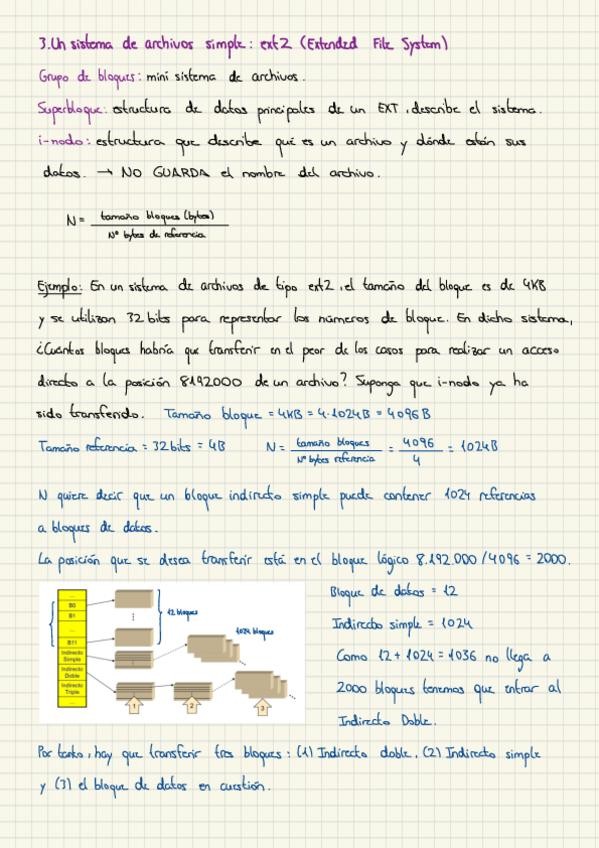 3.Un sistema de archivos simple: ext2 (Extended File System)
Grupo de bloques: mini sistema de archivos.
Superbloque: estructura de datos principales de un EXT, describe el sistema.
i-nodo: estructura que describe qué es un archivo y dónde están sus
datos. → NO GUARDA el nombre del archivo.
N = tamaño bloques (bytes) / Nº bytes de referencia
Ejemplo: En un sistema de archivos de tipo ext2, el tamaño del bloque es de 4KB
y se utilizan 32 bits para representar los números de bloque. En dicho sistema,
¿Cuántos bloques habría que transferir en el peor de los casos para realizar un acceso
directo a la posición 8192000 de un archivo? Suponga que i-nodo ya ha
sido transferido. Tamaño bloque = 4KB = 4·1024B = 4096B
Tamaño referencia = 32bits = 4B N = tamaño bloques / Nº bytes referencia = 4096 / 4 = 1024B
N quiere decir que un bloque indirecto simple puede contener 1024 referencias
a bloques de datos.
La posición que se desea transferir está en el bloque lógico 8.192.000/4096 = 2000.
...
B0
B1
...
B11
Indirecto
Simple
Indirecto
Doble
Indirecto
Triple
...
12 bloques
1024 bloques
1
2
3
Bloque de datos = 12
Indirecto simple = 1024
Como 12 + 1024 = 1036 no llega a
2000 bloques tenemos que entrar al
Indirecto Doble.
Por tanto, hay que transferir tres bloques: (1) Indirecto doble, (2) Indirecto simple
y (3) el bloque de datos en cuestión.